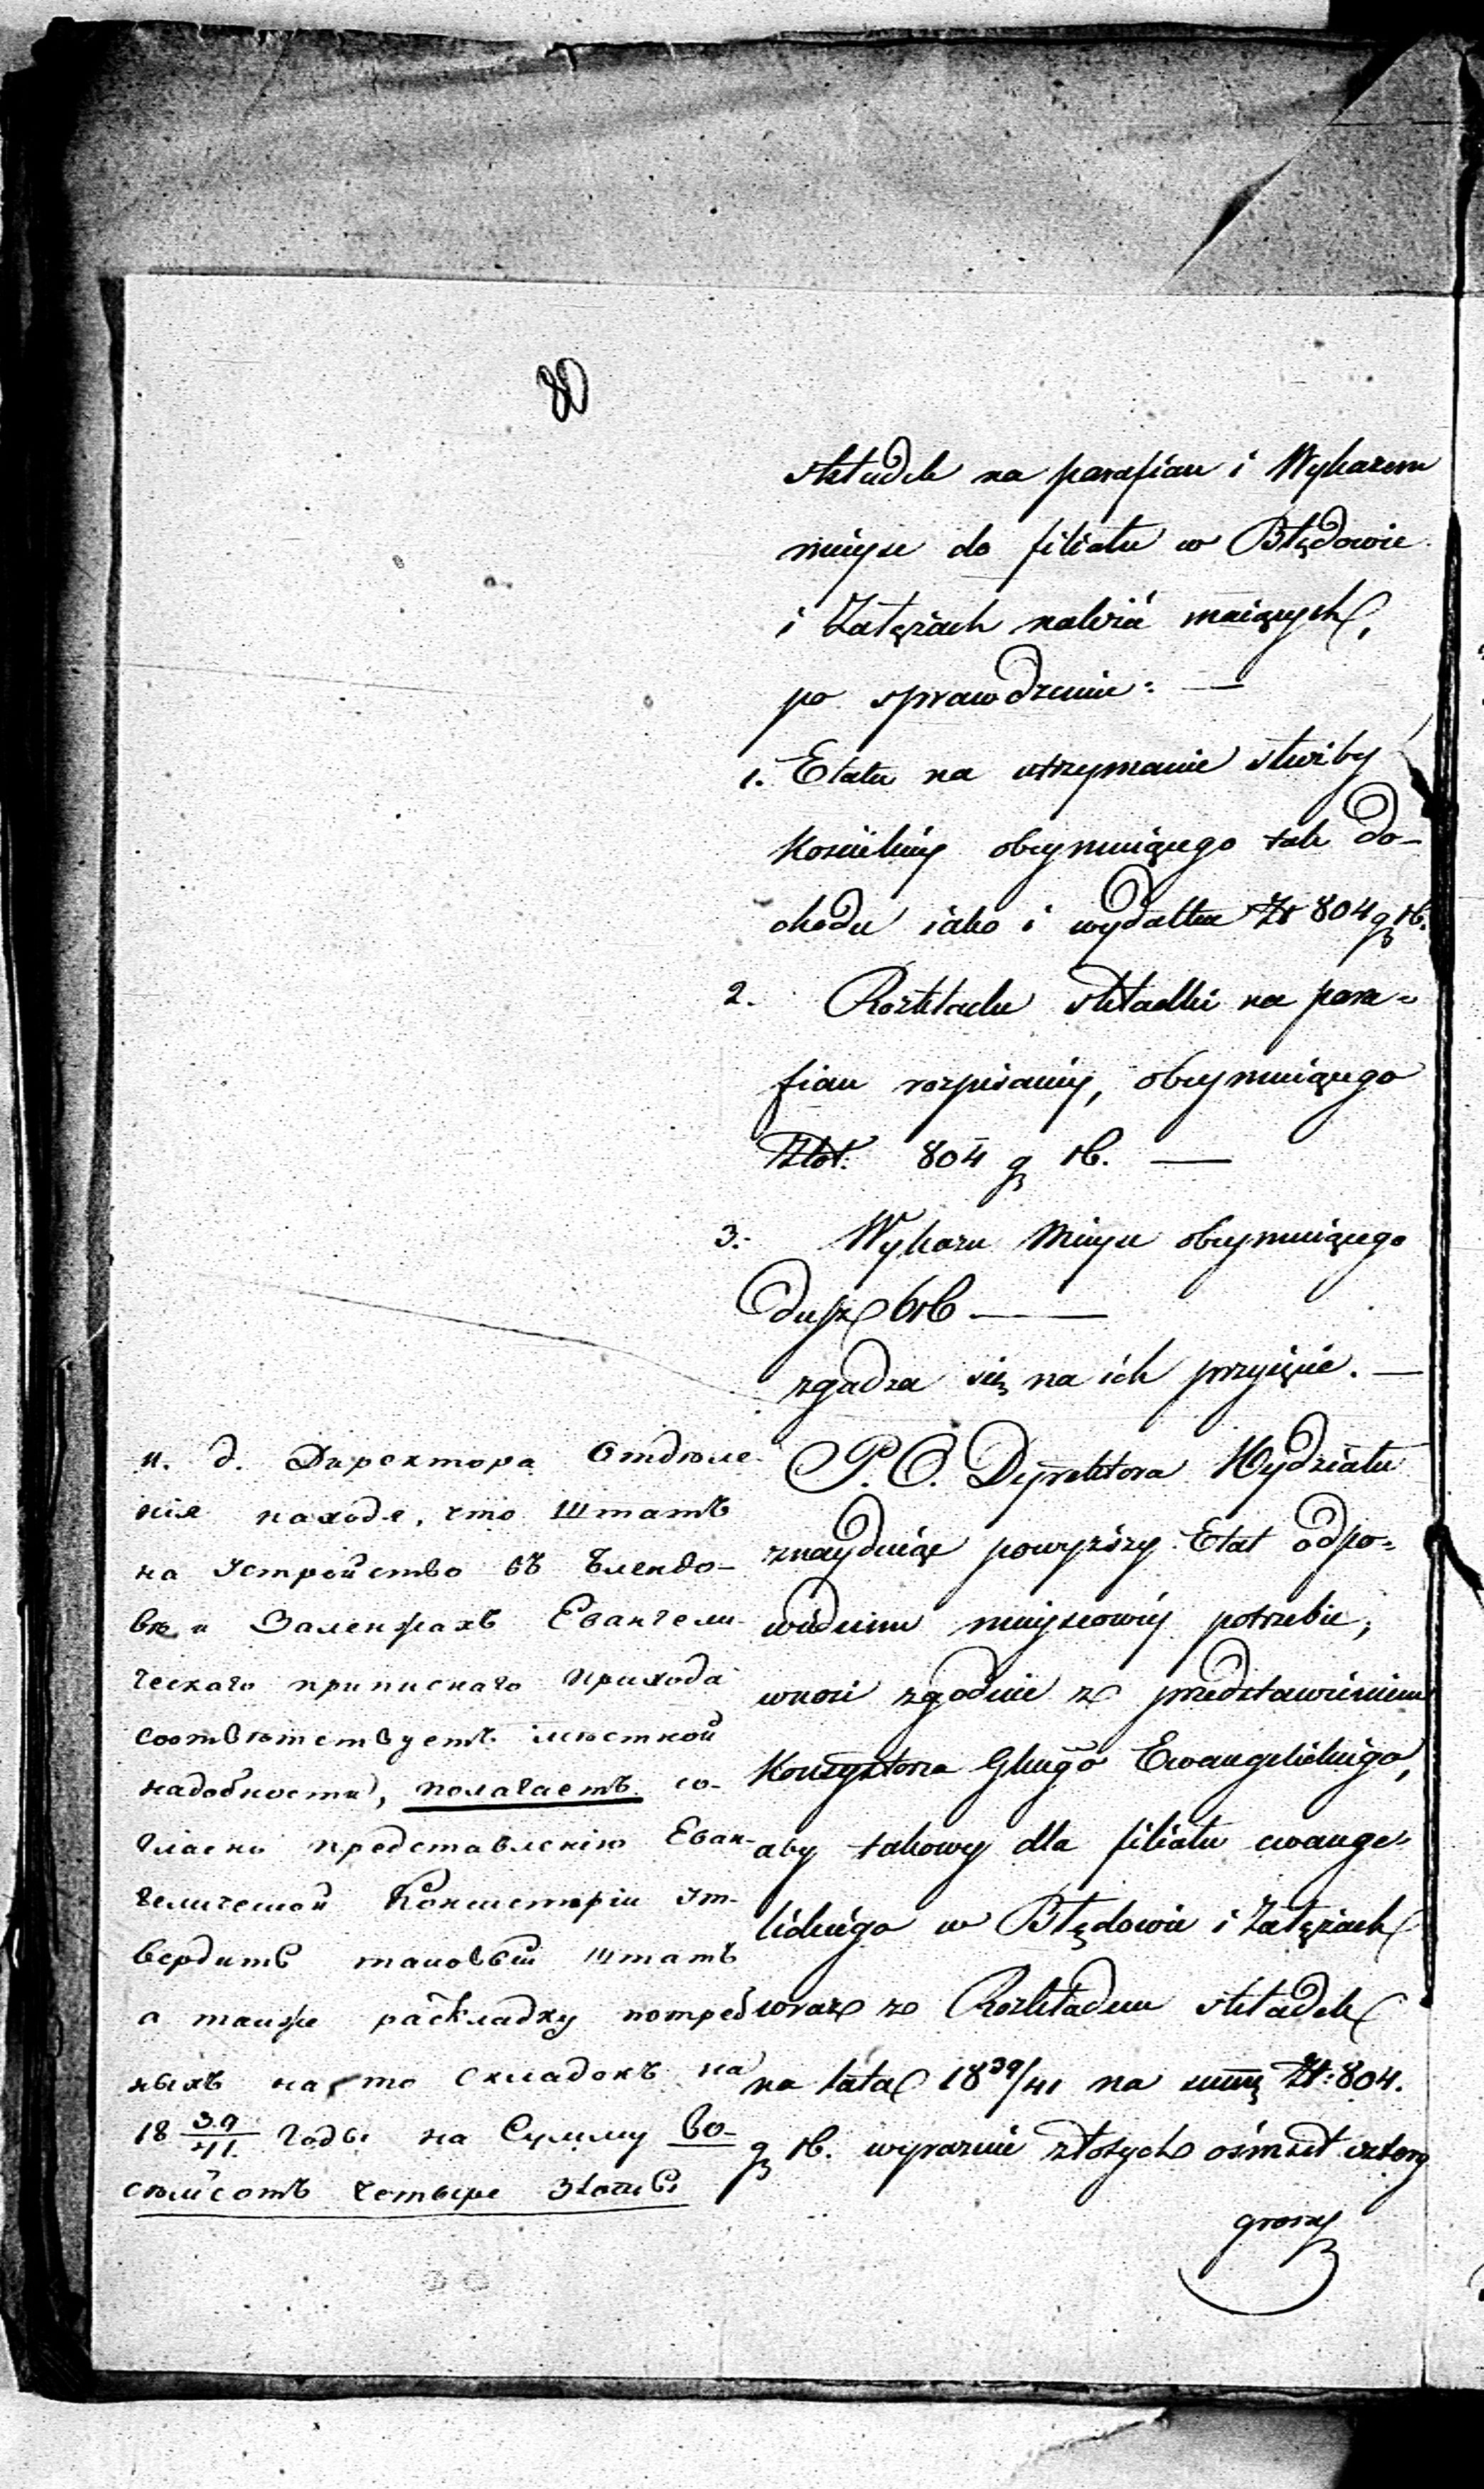 80
składek na parafian i Wykazem
mieysc do filiału w Błędowie
i Załężach należeć maiących,
po sprawdzeniu: —
1. Etatu na utrzymanie służby
kościelnéy obeymuiącego tak do-
chodu iako i wydatku Zł 804 g 16.
2. Rozkładu składki na para-
fian rozpisanéy, obeymuiącego
Złot. 804 g 16. —
3. Wykazu Mieysc obeymuiącego
dusz 616 —
zgadza się na ich przyięcie. —
P. O. Dyrektora Wydziału
znayduiąc powyższy Etat odpo-
wiednim mieyscowéy potrzebie,
wnosi zgodnie z przedstawieniem
Konsystorza Glnégo Ewangelickiego,
aby takowy dla filiału ewange-
lickiego w Błędowie i Załężach
wraz z Rozkładem składek
na lata 18 39/41 na summę Zł: 804.
g 16. wyraznie złotych ośmset cztery
groszy
и. д. Директора Отдѣле-
нія находя, что Штатъ
на устройство въ Бленdo-
вѣ и Заленжахъ Евангели-
ческаго приписнаго прихода
соотвѣтствуетъ мѣстной
надобности, полагаетъ со-
гласно представленію Еван-
гелической Консисторіи ут-
вердить таковый штатъ
а также раскладку потреб
ныхъ на то складокъ на
18 39/41 годы на Сумму во-
семьсотъ четыре злотыхъ